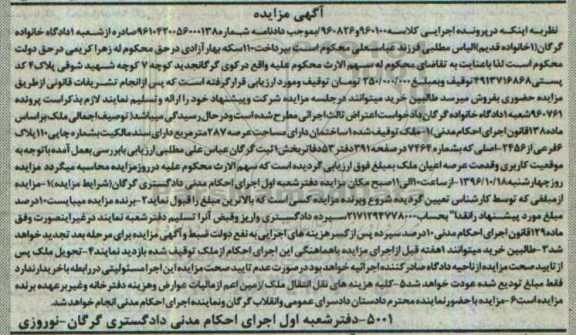 آگهی مزایده
نظر به اینکه در پرونده اجرایی کلاسه ۹۶۰۱۰۰و۹۶۰۸۲۶/بموجب دادنامه شماره ۹۶۱۰۴۲۰۰۵۶۰۰۰۱۳۸صادره از شعبه ۱دادگاه خانواده
گرگان(۱خانواده قدیم)الیاس مطلبی فرزند عباسعلی محکوم است بپرداخت ۱۱۰سکه بهار آزادی در حق محکوم له زهرا کریمی در حق دولت
محکوم است لذا باعنایت به تقاضای محکوم له سهم الارث محکوم علیه واقع در کوی گرگانجدید کوچه ۷ کوچه شهید شوقی پلاک ۴ کد
پستی ۴۹۱۳۷۱۶۸۶۸توقیف وبمبلغ ۲۵۰/۰۰۰/۰۰۰ تومان توقیف ومورد ارزیابی قرار گرفته است که پس از انجام تشریفات قانونی از طریق
مزایده حضوری بفروش میرسد طالبین خرید میتوانند در جلسه مزایده شرکت وپیشنهاد خود را ارائه و تسلیم نمایند لازم بذکر است پرونده
۹۶۰۷۶۱شعبه ۱دادگاه خانواده گرگان دادخواست اعتراض ثالث اجرائی مطرح شده است ودر حال رسیدگی میباشد( توصیف اجمالی ملک بر اساس
ماده ۱۳۸قانون اجرای احکام مدنی)۱-ملک توقیف شده ۱ساختمان دارای مساحت عرصه ۲۸۷مترمربع دارای سند مالکیت بشماره چاپی ۱۱۰پلاک
۶فرعی از ۲۴۵۶-اصلی که بشماره ۷۴۶۴در صفحه ۳۹۱دفتر ۵۳دفاتر بخش ۱ثبت گرگان عباس علی مطلبی ارزیابی با بررسی بعمل آمده باتوجه به
موقعیت کاربری وقدمت عرصه اعیان ملک بمبلغ فوق ارزیابی گردیده است که سهم الارث محکوم علیه در روز مزایده محاسبه میگردد مزایده
روز چهارشنبه ۱۳۹۶/۱۰/۱۸-از ساعت ۱۰الی ۱۱صبح مکان مزایده دفتر شعبه اول اجرای احکام مدنی دادگستری گرگان(شرایط مزایده)۱-مزایده
از مبلغی که توسط کارشناس تعیین گردیده شروع وبرنده مزایده کسی است که بالاترین مبلغ را قبول نماید ۲-برنده مزایده میبایست ۱۰درصد
مبلغ مورد پیشنهاد رانقدا" بحساب ۲۱۷۱۲۹۴۷۷۸۰۰۰سپرده دادگستری واریز وقبض آنرا تسلیم دفتر شعبه نمایند در غیر اینصورت وفق
ماده ۱۲۹قانون اجرای احکام مدنی ۱۰درصد سپرده پس از کسر هزینه های اجرایی به نفع دولت ضبط و آگهی مزایده برای مرحله بعد تجدید خواهد
شد ۳-طالبین خرید میتوانند ۱هفته قبل از اجرای مزایده باهماهنگی این اجرای احکام از ملک توقیف شده بازدید نمایند ۴-تحویل ملک پس
از تایید صحت مزایده از ناحیه دادگاه صادر کننده اجرائیه خواهد بود در صورت عدم تایید صحت مزایده این اجرا مسئولیتی در رابطه با خریدار ندارد
فقط مبلغ تودیع شده عودت خواهد شد ۵-کلیه هزینه های نقل انتقال ملک /زمین اعم از مالیات عوارض وهزینه دفتر خانه وغیر بر عهده برنده
مزایده است ۶-مزایده با حضور نماینده محترم دادستان دادسرای عمومی وانقلاب گرگان ونماینده اجرای احکام مدنی انجام خواهد شد.
۵۰۰۱-دفتر شعبه اول اجرای احکام مدنی دادگستری گرگان -نوروزی